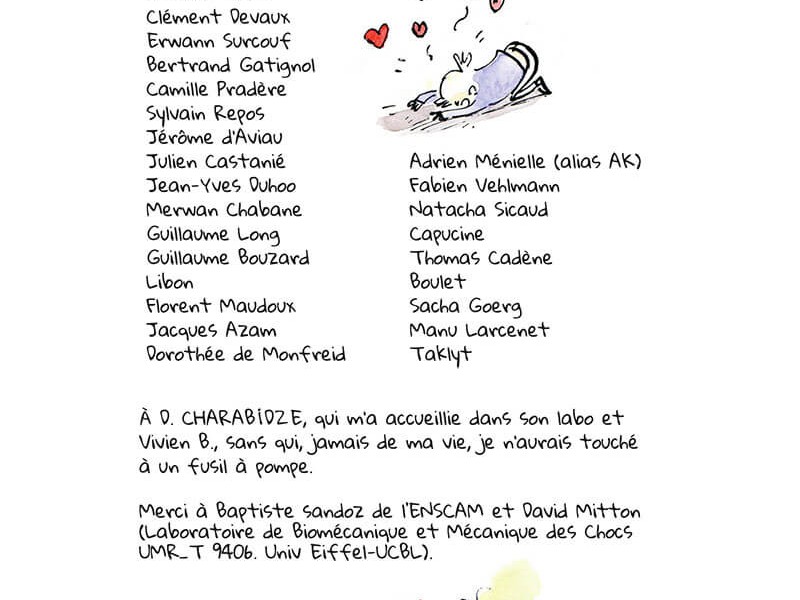 Clément Devaux
Erwann Surcouf
Bertrand Gatignol
Camille Pradère
Sylvain Repos
Jérôme d'Aviau
Julien Castanié
Jean-Yves Duhoo
Merwan Chabane
Guillaume Long
Guillaume Bouzard
Libon
Florent Maudoux
Jacques Azam
Dorothée de Monfreid
Adrien Ménielle (alias AK)
Fabien Vehlmann
Natacha Sicaud
Capucine
Thomas Cadène
Boulet
Sacha Goerg
Manu Larcenet
Taklyt
À D. CHARABIDZE, qui m'a accueillie dans son labo et
Vivien B., sans qui, jamais de ma vie, je n'aurais touché
à un fusil à pompe.
Merci à Baptiste Sandoz de l'ENSCAM et David Mitton
(Laboratoire de Biomécanique et Mécanique des Chocs
UMR_T 9406. Univ Eiffel-UCBL).